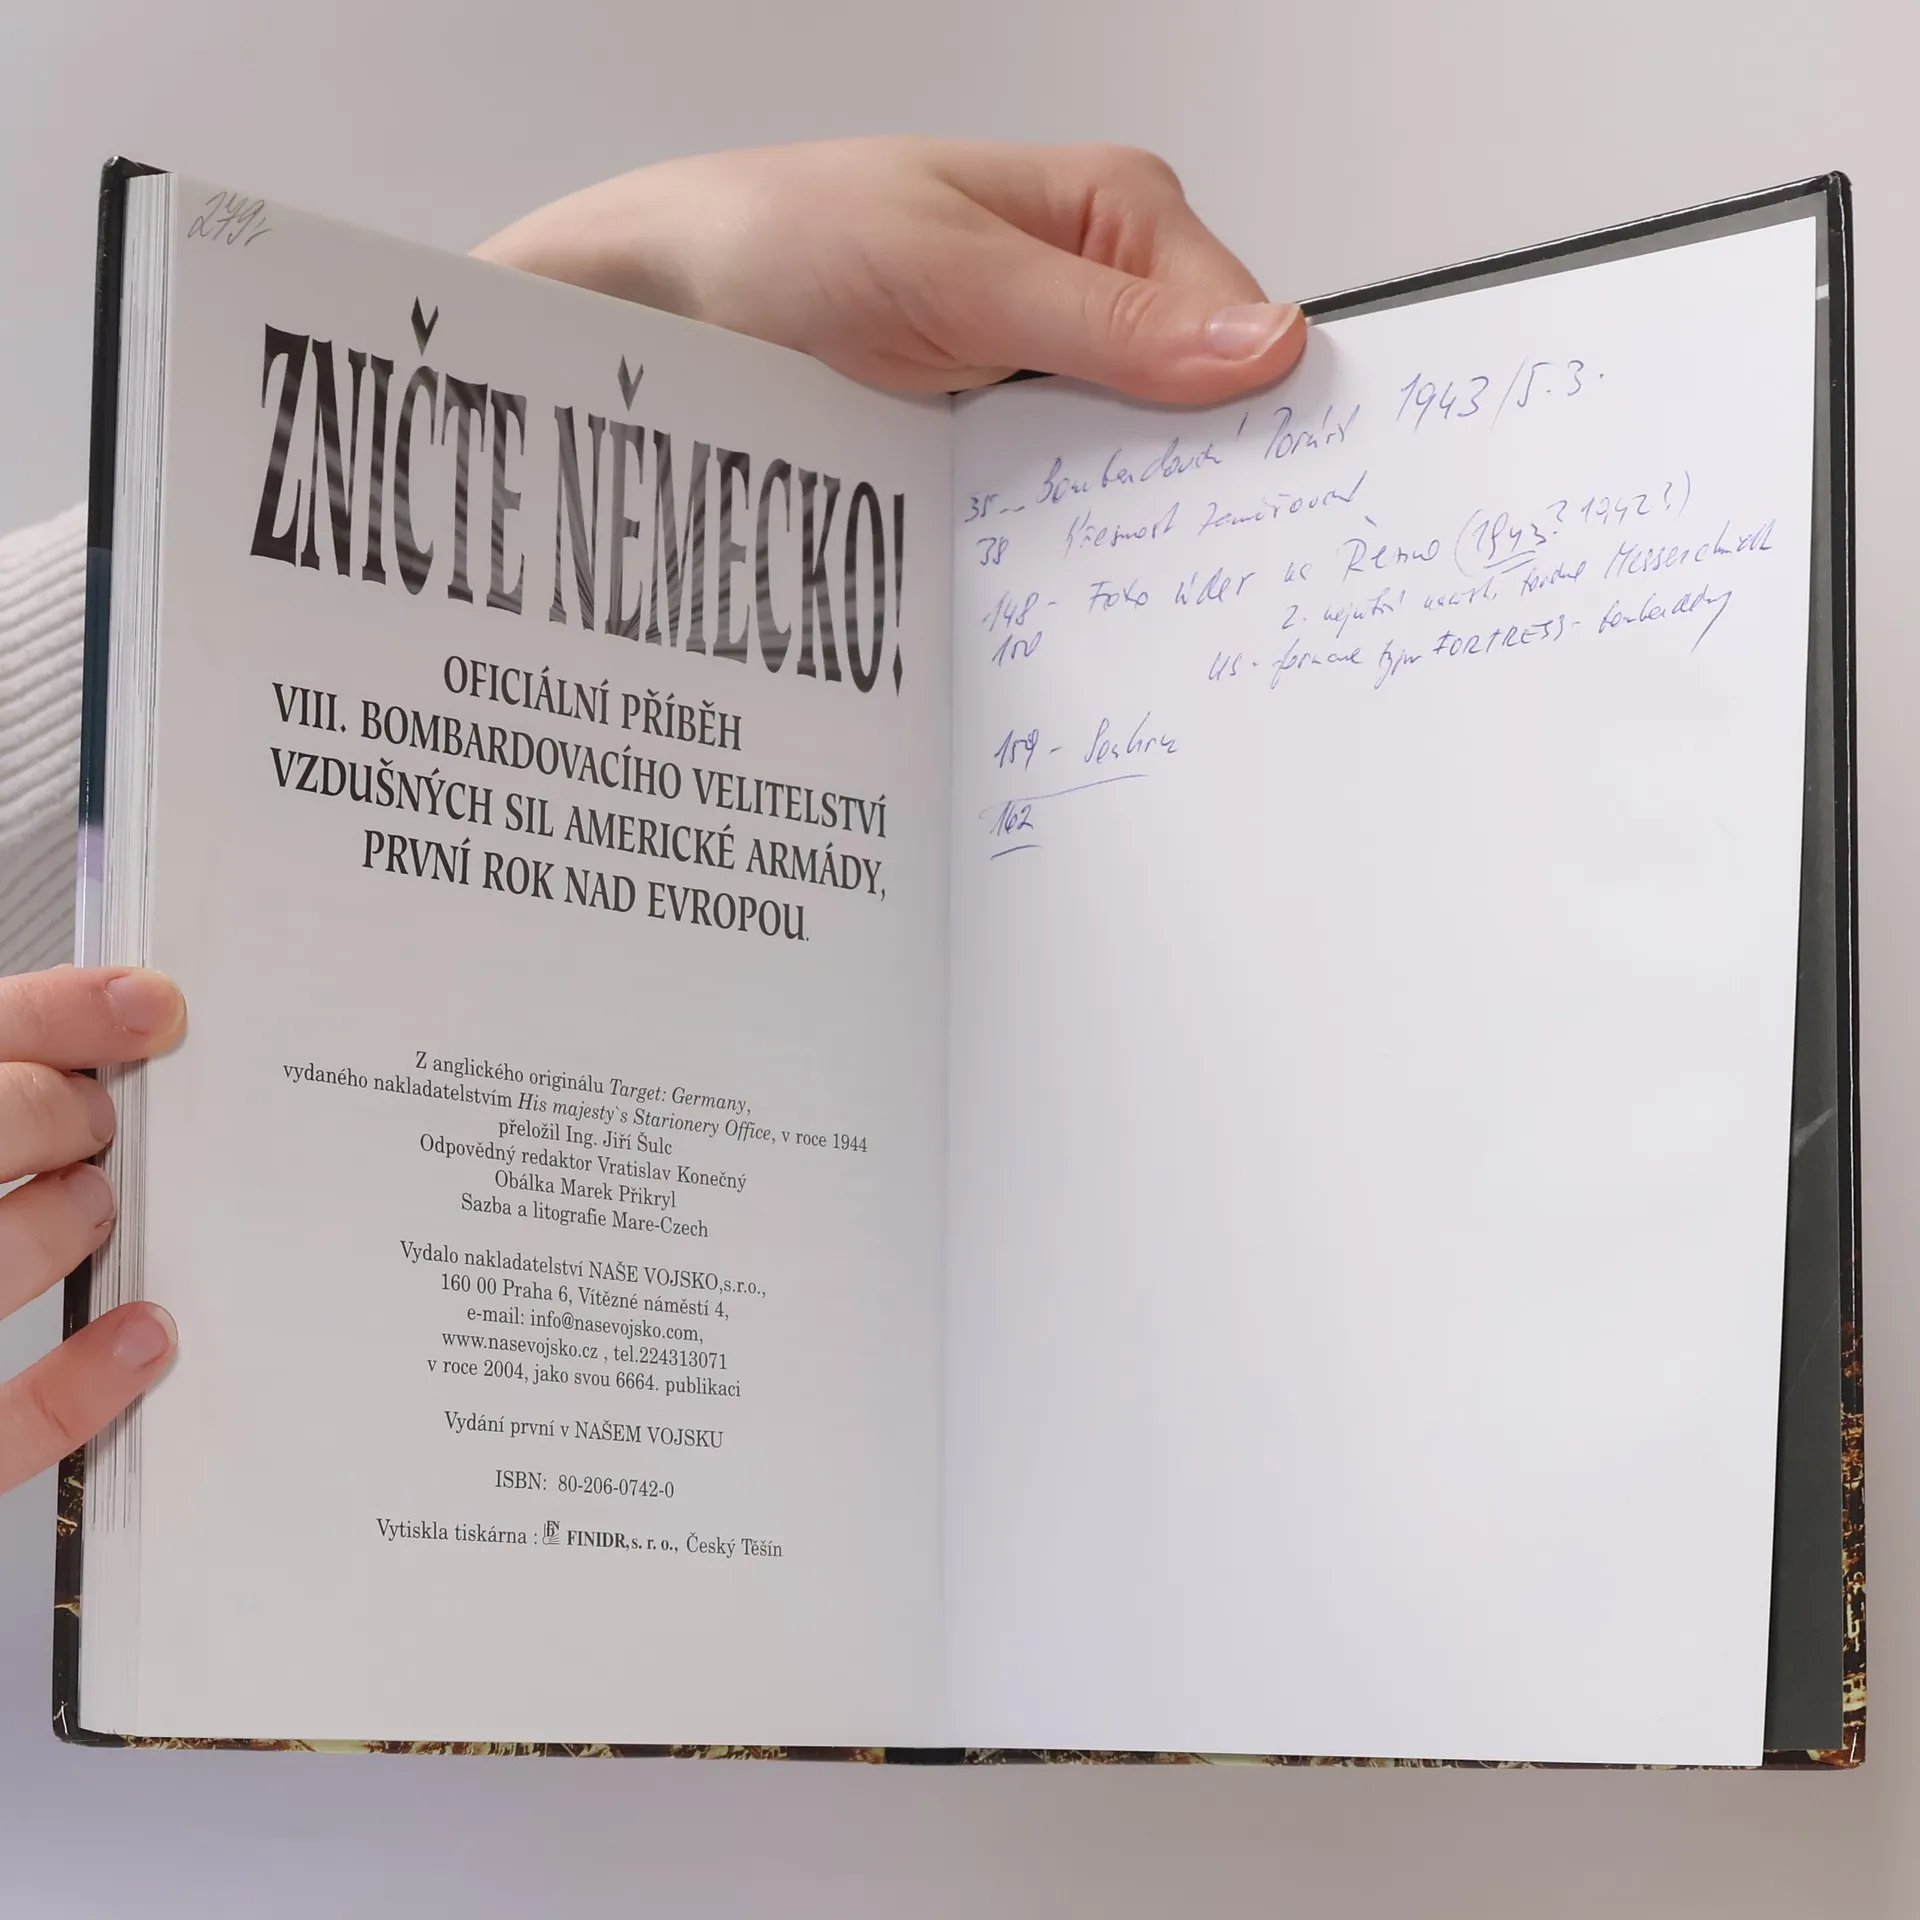 279,-
ZNIČTE NĚMECKO!
OFICIÁLNÍ PŘÍBĚH
VIII. BOMBARDOVACÍHO VELITELSTVÍ
VZDUŠNÝCH SIL AMERICKÉ ARMÁDY,
PRVNÍ ROK NAD EVROPOU.
Z anglického originálu Target: Germany,
vydaného nakladatelstvím His majesty`s Starionery Office, v roce 1944
přeložil Ing. Jiří Šulc
Odpovědný redaktor Vratislav Konečný
Obálka Marek Přikryl
Sazba a litografie Mare-Czech
Vydalo nakladatelství NAŠE VOJSKO,s.r.o.,
160 00 Praha 6, Vítězné náměstí 4,
e-mail: info@nasevojsko.com,
www.nasevojsko.cz , tel.224313071
v roce 2004, jako svou 6664. publikaci
Vydání první v NAŠEM VOJSKU
ISBN: 80-206-0742-0
Vytiskla tiskárna : FINIDR, s. r. o., Český Těšín
35 -- Bombardování Porúří 1943/5.3.
38 Přesnost zaměřování
148 - Foto úder na Řezno (1943? 1942?)
2. Messerschmitt
150 US - formace typu FORTRESS - bombardéry
159 - Souhrn
162